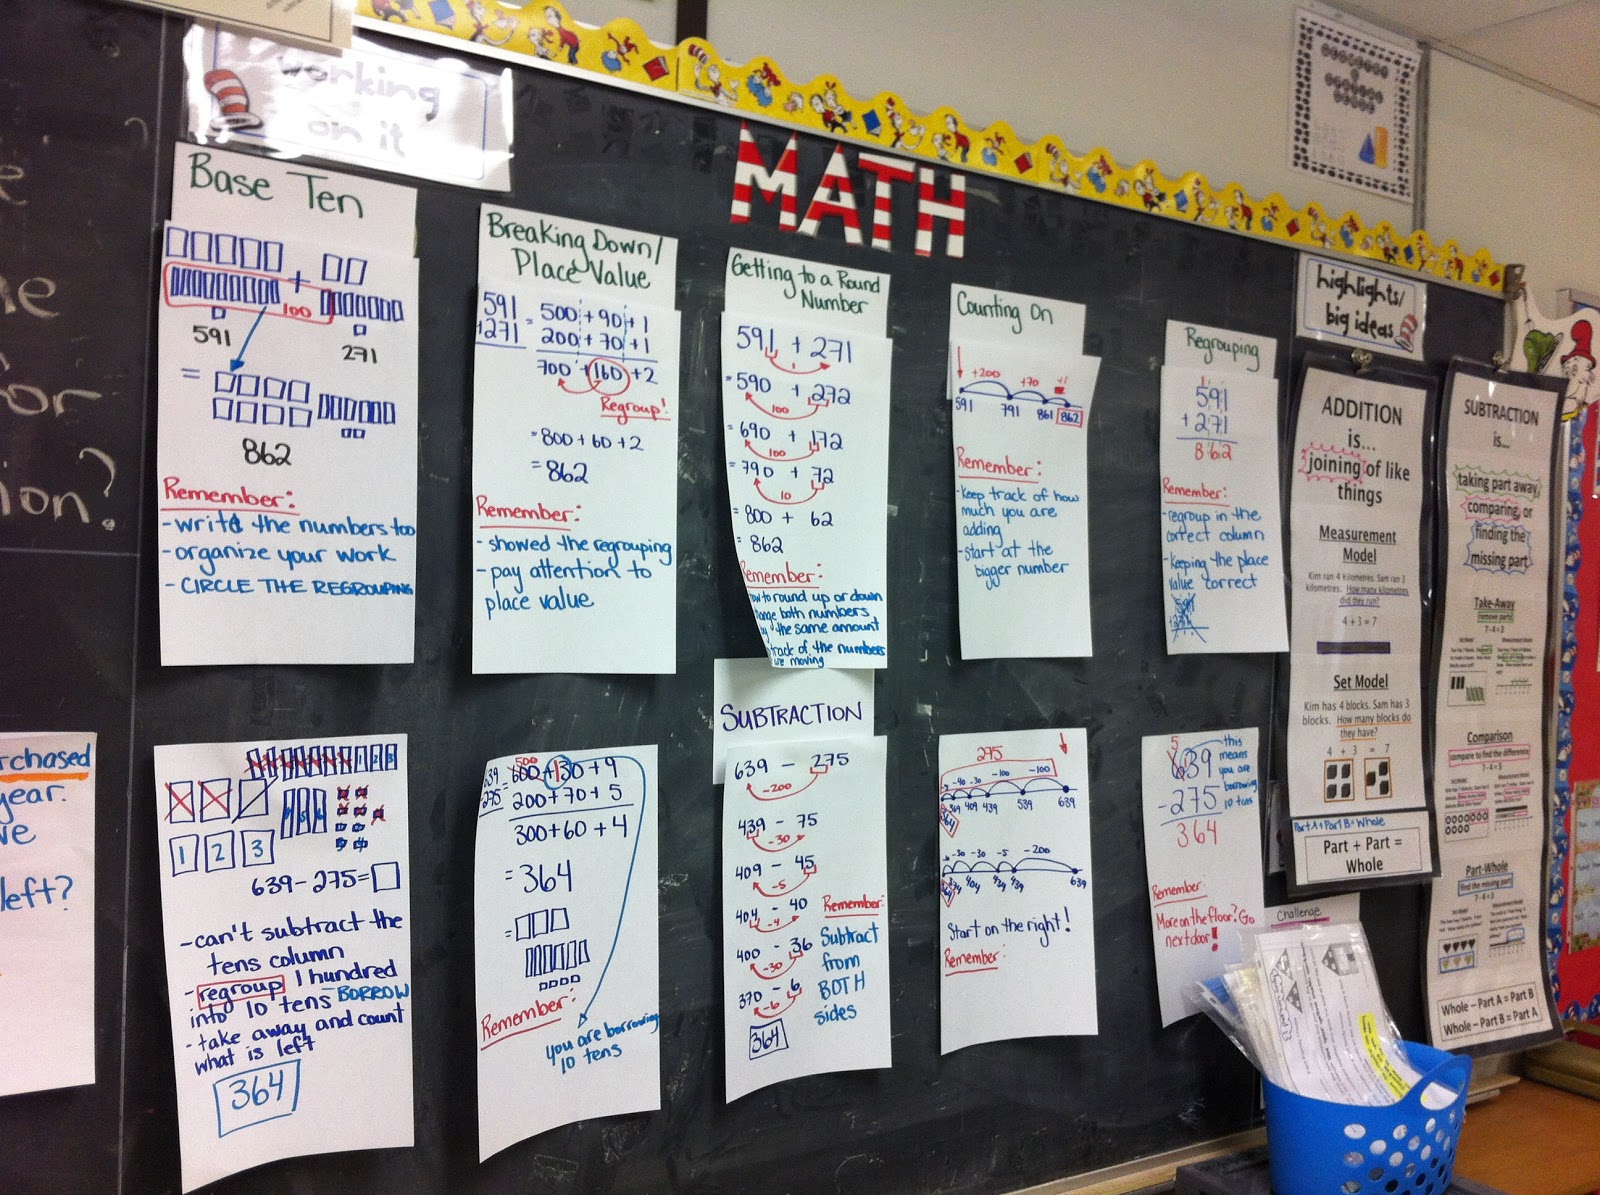 working
on it
MATH
Base Ten
+
100
591
271
=
862
Remember:
- write the numbers too
- organize your work
- CIRCLE THE REGROUPING
Breaking Down/
Place Value
591 = 500 + 90 + 1
+271 200 + 70 + 1
700 + 160 + 2
Regroup!
= 800 + 60 + 2
= 862
Remember:
- showed the regrouping
- pay attention to
place value
Getting to a Round
Number
591 + 271
= 590 + 272
100
= 690 + 172
100
= 790 + 72
10
= 800 + 62
= 862
Remember:
to round up or down
both numbers
the same amount
track of the numbers
moving
Counting On
+200 +70 +1
591 791 861 862
Remember:
- Keep track of how
much you are
adding
- start at the
bigger number
Regrouping
1
591
+ 271
862
Remember:
- regroup in the
correct column
- Keeping the place
value correct
591
highlights/
big ideas
ADDITION
is...
joining of like
things
Measurement
Model
Kim ran 4 kilometres. Sam ran 3
kilometres. How many kilometres
did they run?
4 + 3 = 7
Set Model
Kim has 4 blocks. Sam has 3
blocks. How many blocks do
they have?
4 + 3 = 7
Part A + Part B = Whole
Part + Part =
Whole
SUBTRACTION
is...
taking part away,
comparing, or
finding the
missing part
Take-Away
remove parts
7 - 4 = 3
Comparison
compare to find the difference
7 - 4 = 3
Part-Whole
find the missing part
7 - 4 = 3
Whole – Part A = Part B
Whole – Part B = Part A
rchased
year.
ve
left?
1 2 3
1 2 3
639 - 275 =
- can't subtract the
tens column
- regroup 1 hundred
into 10 tens BORROW
- take away and count
what is left
364
500
639 = 600 + 130 + 9
275 = 200 + 70 + 5
300 + 60 + 4
= 364
=
Remember:
you are borrowing
10 tens
SUBTRACTION
639 - 275
-200
439 - 75
-30
409 - 45
-5
404 - 40
-4
400 - 36
-30
370 - 6
-6
364
Remember:
Subtract
from
BOTH
sides
275
-40 -30 -100 -100
369 409 439 539 639
-30 -30 -5 -200
404 434 439 639
Start on the right!
Remember:
5
639
- 275
364
this
means
you are
borrowing
10 tens
Remember:
More on the floor? Go
next door!
Challenge